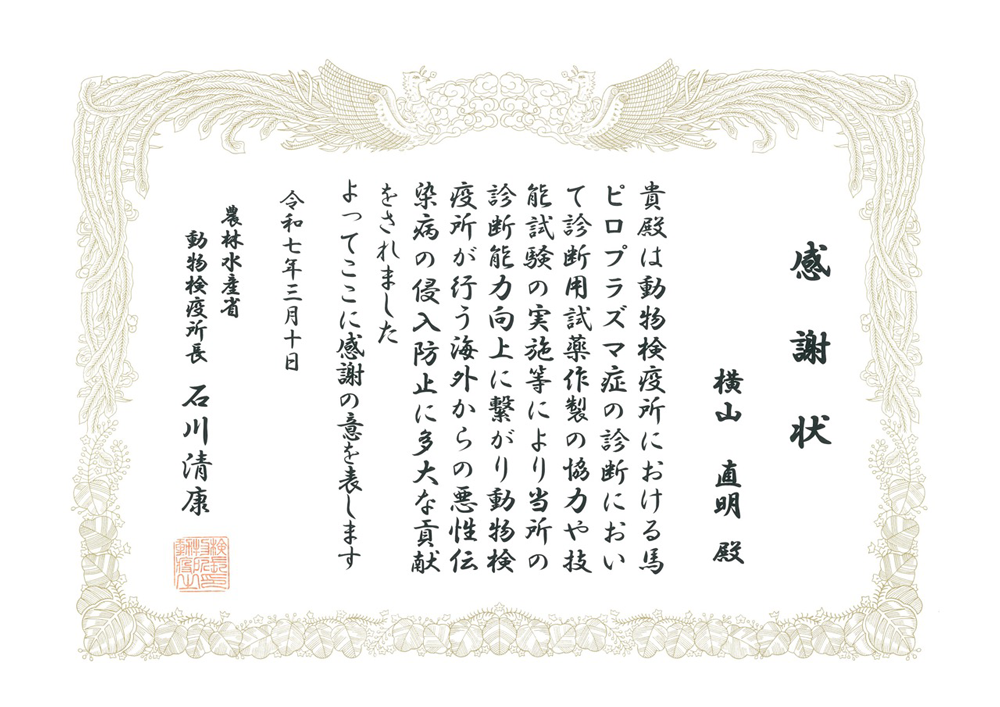 感謝状
横山 直明 殿
貴殿は動物検疫所における馬
ピロプラズマ症の診断におい
て診断用試薬作製の協力や技
能試験の実施等により当所の
診断能力向上に繋がり動物検
疫所が行う海外からの悪性伝
染病の侵入防止に多大な貢献
をされました
よってここに感謝の意を表します
令和七年三月十日
農林水産省
動物検疫所長 石川清康